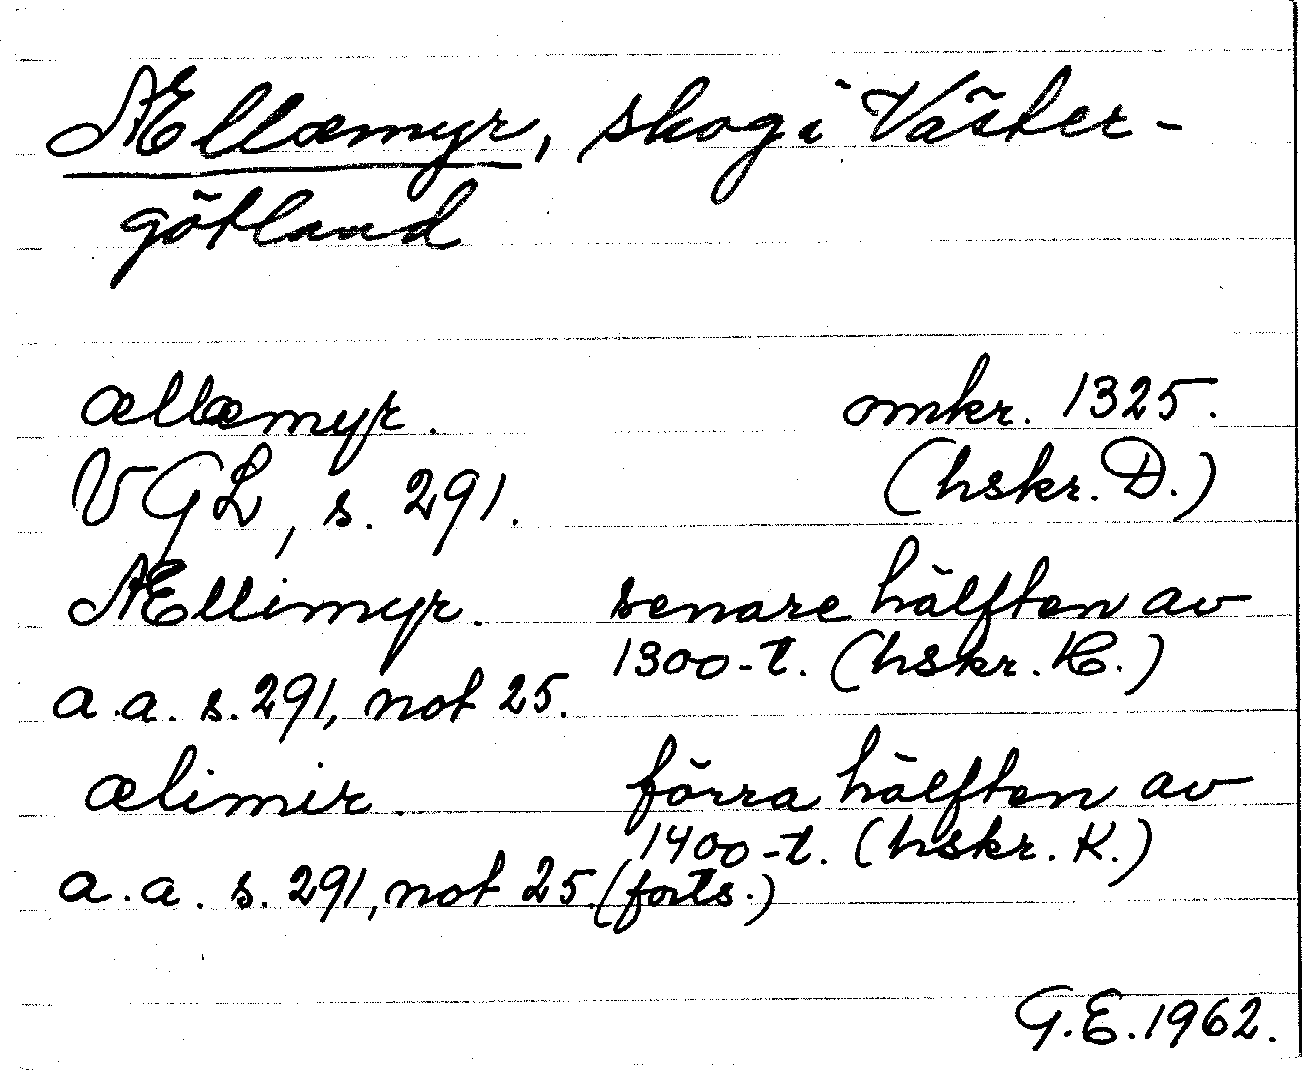 Ællæmyr, skog i Väster-
götland
ællæmyr. omkr. 1325.
VGL, s. 291. (hskr. D.)
Ællimyr. senare hälften av
1300-t. (hskr. H.)
a.a. s. 291, not 25.
ælimir. förra hälften av
1400-t. (hskr. K.)
a.a. s. 291, not 25. (forts.)
G.E. 1962.